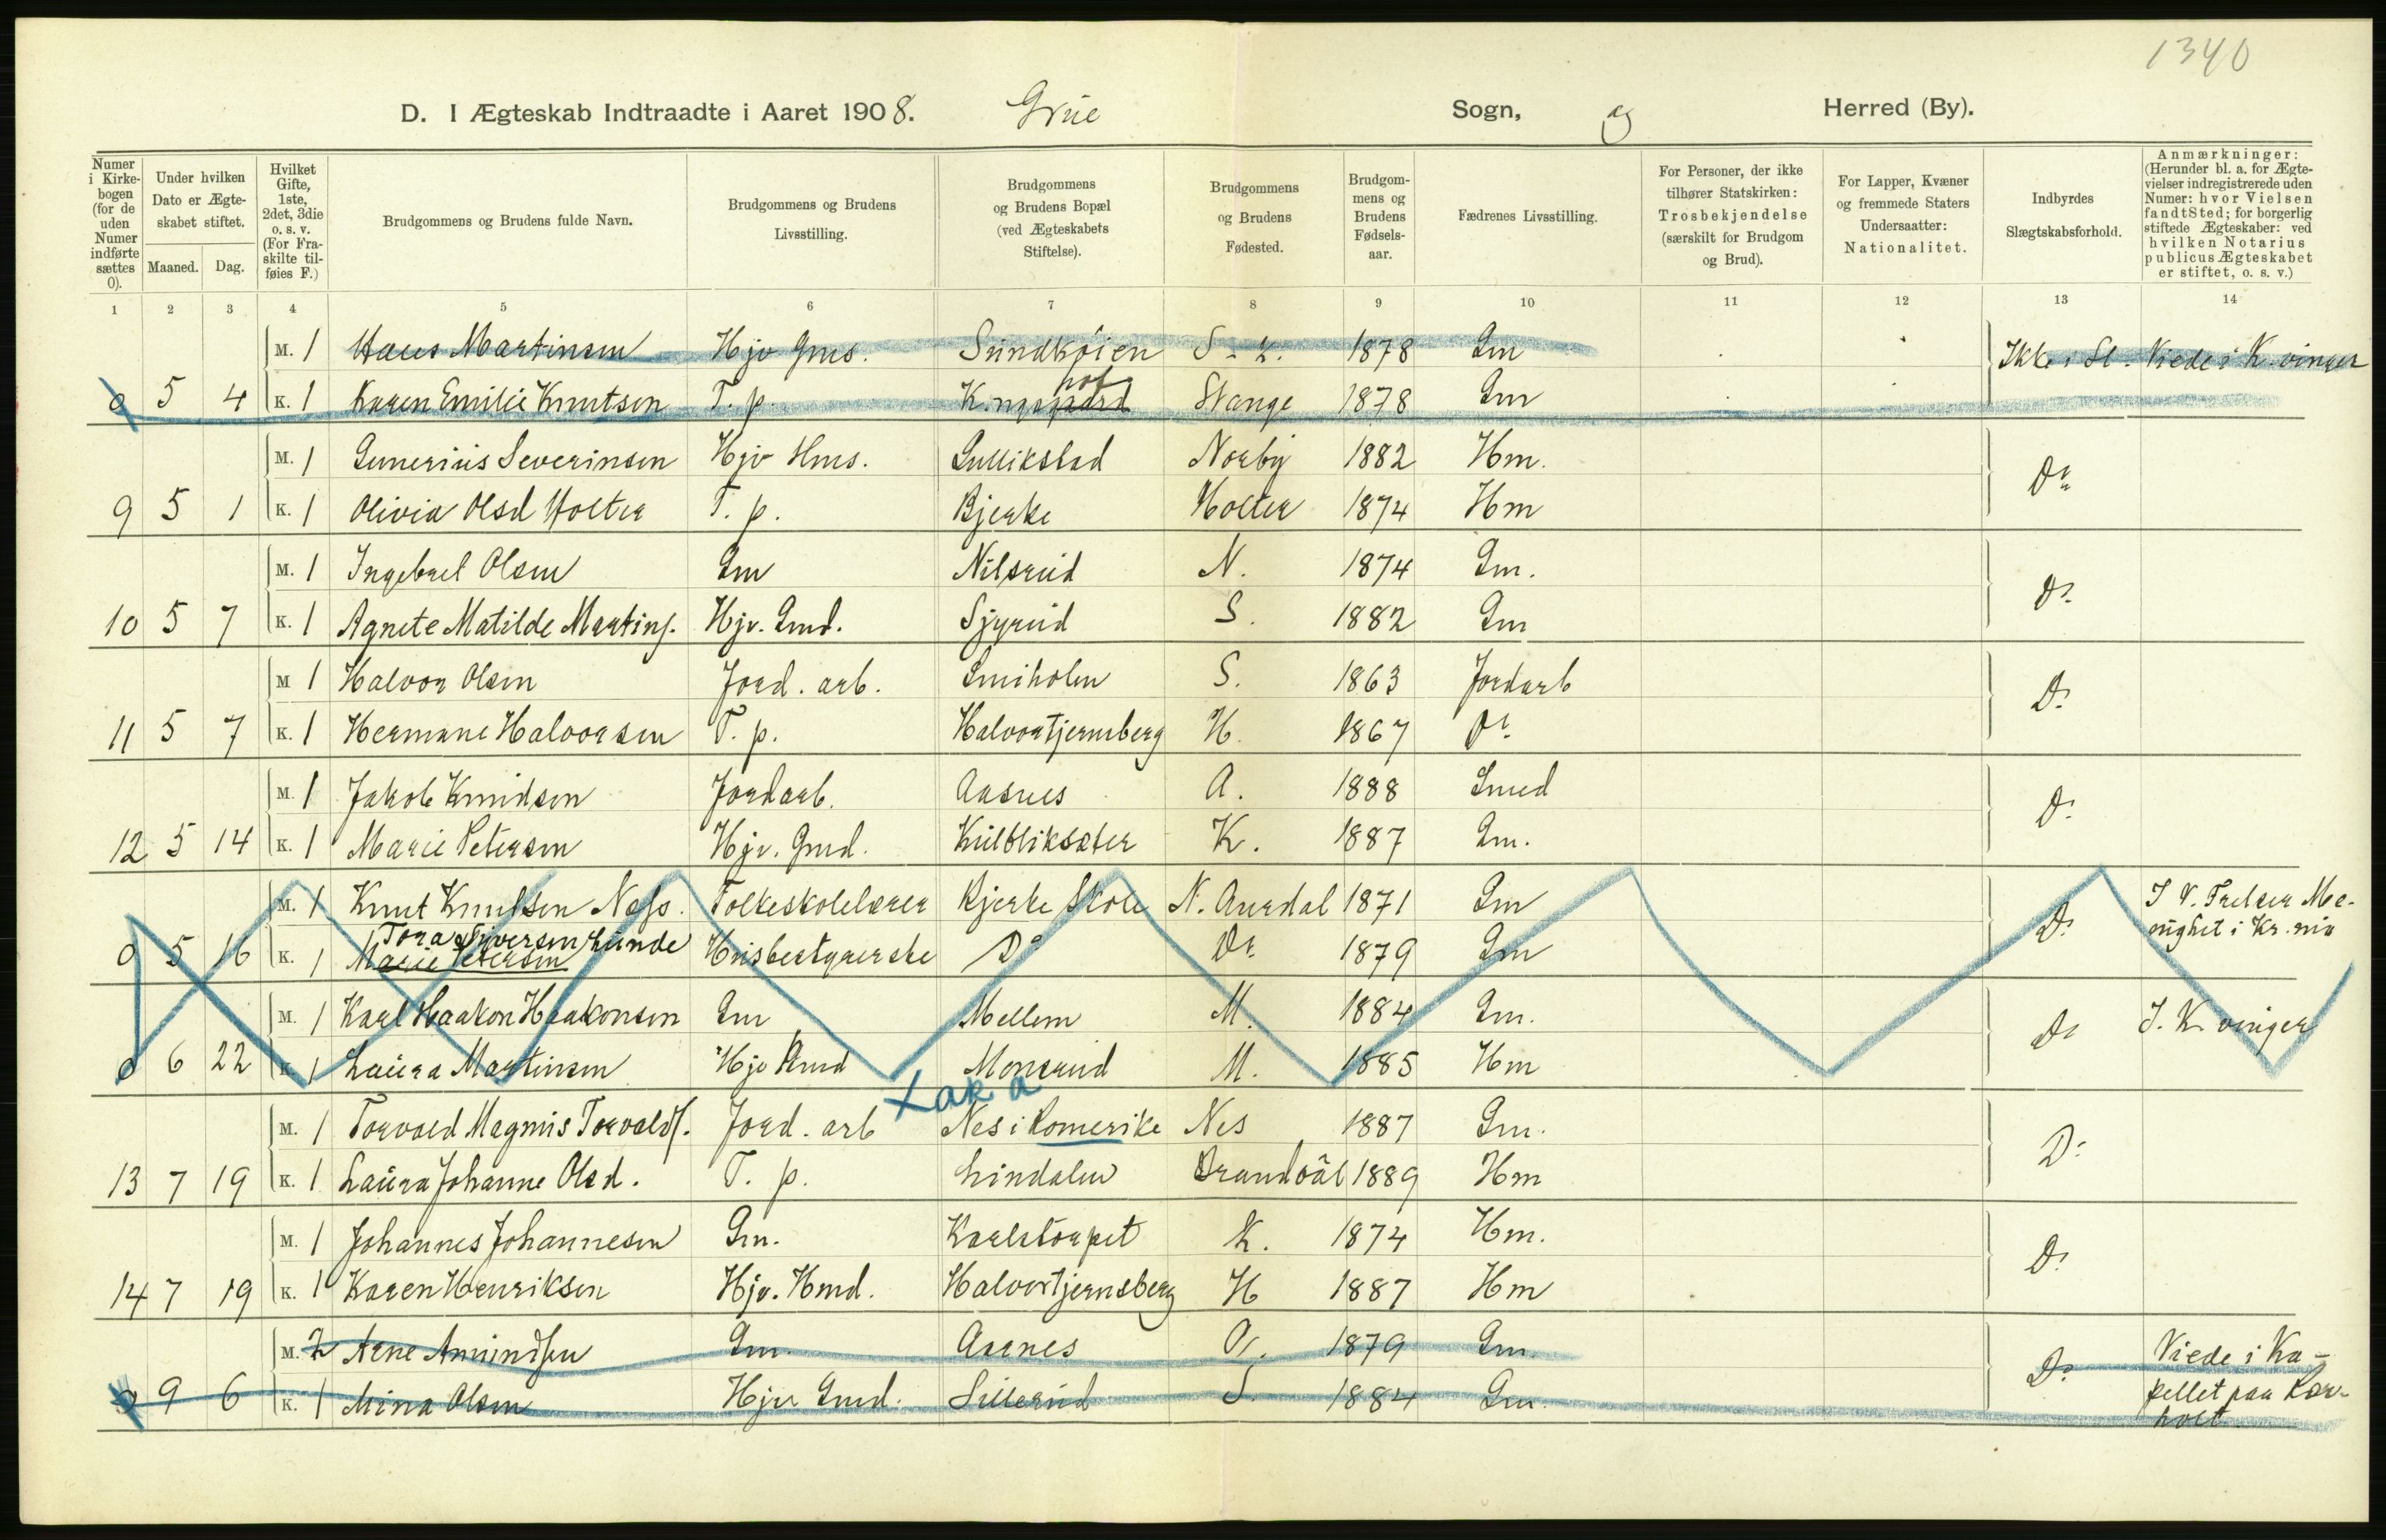 1340
D. I Ægteskab Indtraadte i Aaret 1908. Grue Sogn, og Herred (By).
Numer i Kirkebogen (for de uden Numer indførte sættes 0).
Under hvilken Dato er Ægteskabet stiftet.
Maaned. Dag.
Hvilket Gifte, 1ste, 2det, 3die o. s. v. (For Fraskilte tilføies F.)
Brudgommens og Brudens fulde Navn.
Brudgommens og Brudens Livsstilling.
Brudgommens og Brudens Bopæl (ved Ægteskabets Stiftelse).
Brudgommens og Brudens Fødested.
Brudgommens og Brudens Fødselsaar.
Fædrenes Livsstilling.
For Personer, der ikke tilhører Statskirken: Trosbekjendelse (særskilt for Brudgom og Brud).
For Lapper, Kvæner og fremmede Staters Undersaatter: Nationalitet.
Indbyrdes Slægtskabsforhold.
Anmærkninger: (Herunder bl. a. for Ægtevielser indregistrerede uden Numer: hvor Vielsen fandt Sted; for borgerlig stiftede Ægteskaber: ved hvilken Notarius publicus Ægteskabet er stiftet, o. s. v.)
1 2 3 4 5 6 7 8 9 10 11 12 13 14
M. 1 Hans Martinsen Hjv Gms. Sundkøien S - k. 1878 Gm Ikke i Sl. Viede i K.vinger
0 5 4 K. 1 Karen Emilie Knutsen T. p. Stange 1878 Gm
M. 1 Gunerius Severinsen Hjv Hms. Gullikstad Norby 1882 Hm. Do
9 5 1 K. 1 Olivia Olsd Holter T. p. Bjerke Holter 1874 Hm
M. 1 Ingebret Olsen Gm Nilsrud N. 1874 Gm. Do
10 5 7 K. 1 Agnete Matilde Martins. Hjv. Gmd. Sjyrud S. 1882 Gm
M 1 Halvor Olsen Jord. arb. Smiholen S. 1863 Jordarb Do
11 5 7 K. 1 Hermane Halvorsen T. p. Halvortjernsberg H. 1867 Do
M. 1 Jakob Knudsen Jordarb. Aasnes A. 1888 Smed Do
12 5 14 K. 1 Marie Petersen Hjv. Gmd. Kulbliksæter K. 1887 Gm.
M. 1 Knut Knutsen Næss. Folkeskolelærer Bjerke Skole N. Aurdal 1871 Gm Do I V. Frelser Me-
Tora Siversen Lunde nighet i Kr.nia
0 5 16 K. 1 Marie Petersen Husbestyrerske Do Do 1879 Gm
M. 1 Karl Haakon Haakonsen Gm Mellem M. 1884 Gm. Do I. K.vinger
0 6 22 K. 1 Laura Martinsen Hjv Hmd Monsrud M. 1885 Hm
+ ak a
M. 1 Torvald Magnus Torvalds. Jord. arb Nes i Romerike Nes 1887 Gm. Do
13 7 19 K. 1 Laura Johanne Olsd. T. p. Lindalen Brandvål 1889 Hm
M. 1 Johannes Johannesen Gm. Karlstorpet K. 1874 Hm. Do
14 7 19 K. 1 Karen Henriksen Hjv. Hmd. Halvortjernsberg H 1887 Hm
M. 2 Arne Amundsen Gm. Aasnes A. 1879 Gm. Do Viede i Ka-
0 9 6 K. 1 Mina Olsen Hjv Gmd. Sillerud S. 1884 Gm. pellet paa Kor-
holt